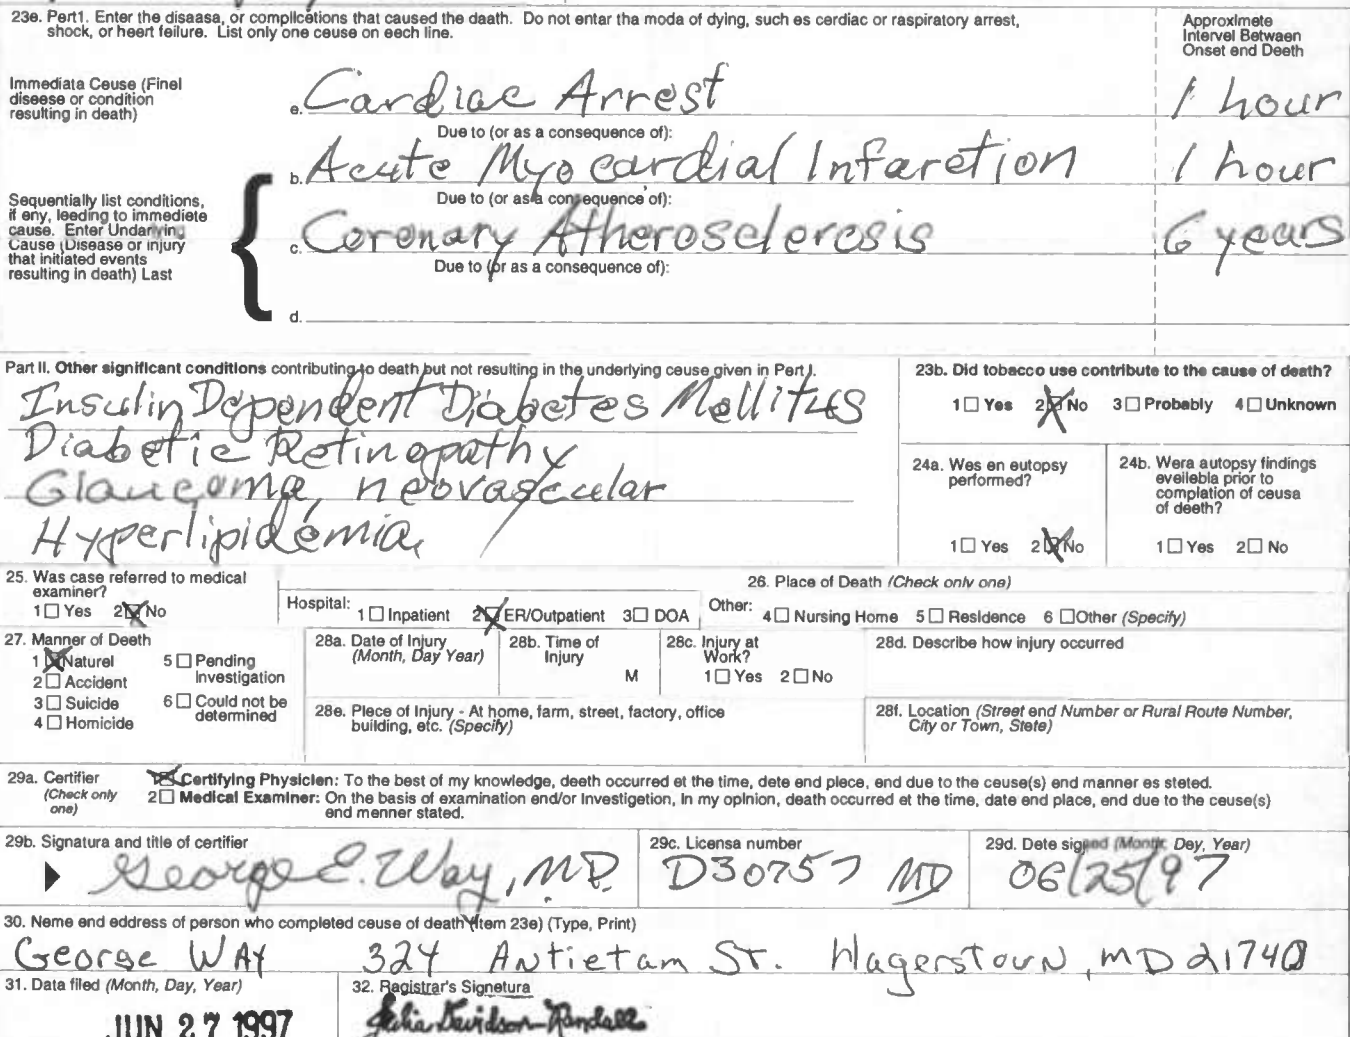 23a. Part1. Enter the disease, or complications that caused the death. Do not enter the mode of dying, such as cardiac or respiratory arrest,
shock, or heart failure. List only one cause on each line.
Approximate
Interval Between
Onset and Death
Immediate Cause (Final
disease or condition
resulting in death)
a. Cardiac Arrest 1 hour
Due to (or as a consequence of):
b. Acute Myocardial Infarction 1 hour
Due to (or as a consequence of):
Sequentially list conditions,
if any, leading to immediate
cause. Enter Underlying
Cause (Disease or injury
that initiated events
resulting in death) Last
c. Coronary Atherosclerosis 6 years
Due to (or as a consequence of):
d.
Part II. Other significant conditions contributing to death but not resulting in the underlying cause given in Part I.
Insulin Dependent Diabetes Mellitus
Diabetic Retinopathy
Glaucoma, neovascular
Hyperlipidemia
23b. Did tobacco use contribute to the cause of death?
1 Yes 2 No 3 Probably 4 Unknown
24a. Was an autopsy
performed?
1 Yes 2 No
24b. Were autopsy findings
available prior to
completion of cause
of death?
1 Yes 2 No
25. Was case referred to medical
examiner?
1 Yes 2 No
26. Place of Death (Check only one)
Hospital: 1 Inpatient 2 ER/Outpatient 3 DOA Other: 4 Nursing Home 5 Residence 6 Other (Specify)
27. Manner of Death
1 Natural 5 Pending
Investigation
2 Accident
3 Suicide 6 Could not be
determined
4 Homicide
28a. Date of Injury
(Month, Day Year)
28b. Time of
Injury
M
28c. Injury at
Work?
1 Yes 2 No
28d. Describe how injury occurred
28e. Place of Injury - At home, farm, street, factory, office
building, etc. (Specify)
28f. Location (Street and Number or Rural Route Number,
City or Town, State)
29a. Certifier
(Check only
one)
Certifying Physician: To the best of my knowledge, death occurred at the time, date and place, and due to the cause(s) and manner as stated.
2 Medical Examiner: On the basis of examination and/or Investigation, in my opinion, death occurred at the time, date and place, and due to the cause(s)
and manner stated.
29b. Signature and title of certifier
George E. Way, M.D.
29c. License number
D30757 MD
29d. Date signed (Month, Day, Year)
06/25/97
30. Name and address of person who completed cause of death (Item 23a) (Type, Print)
George WAY 324 Antietam St. Hagerstown, MD 21740
31. Data filed (Month, Day, Year)
JUN 27 1997
32. Registrar's Signature
Julia Davidson-Randall